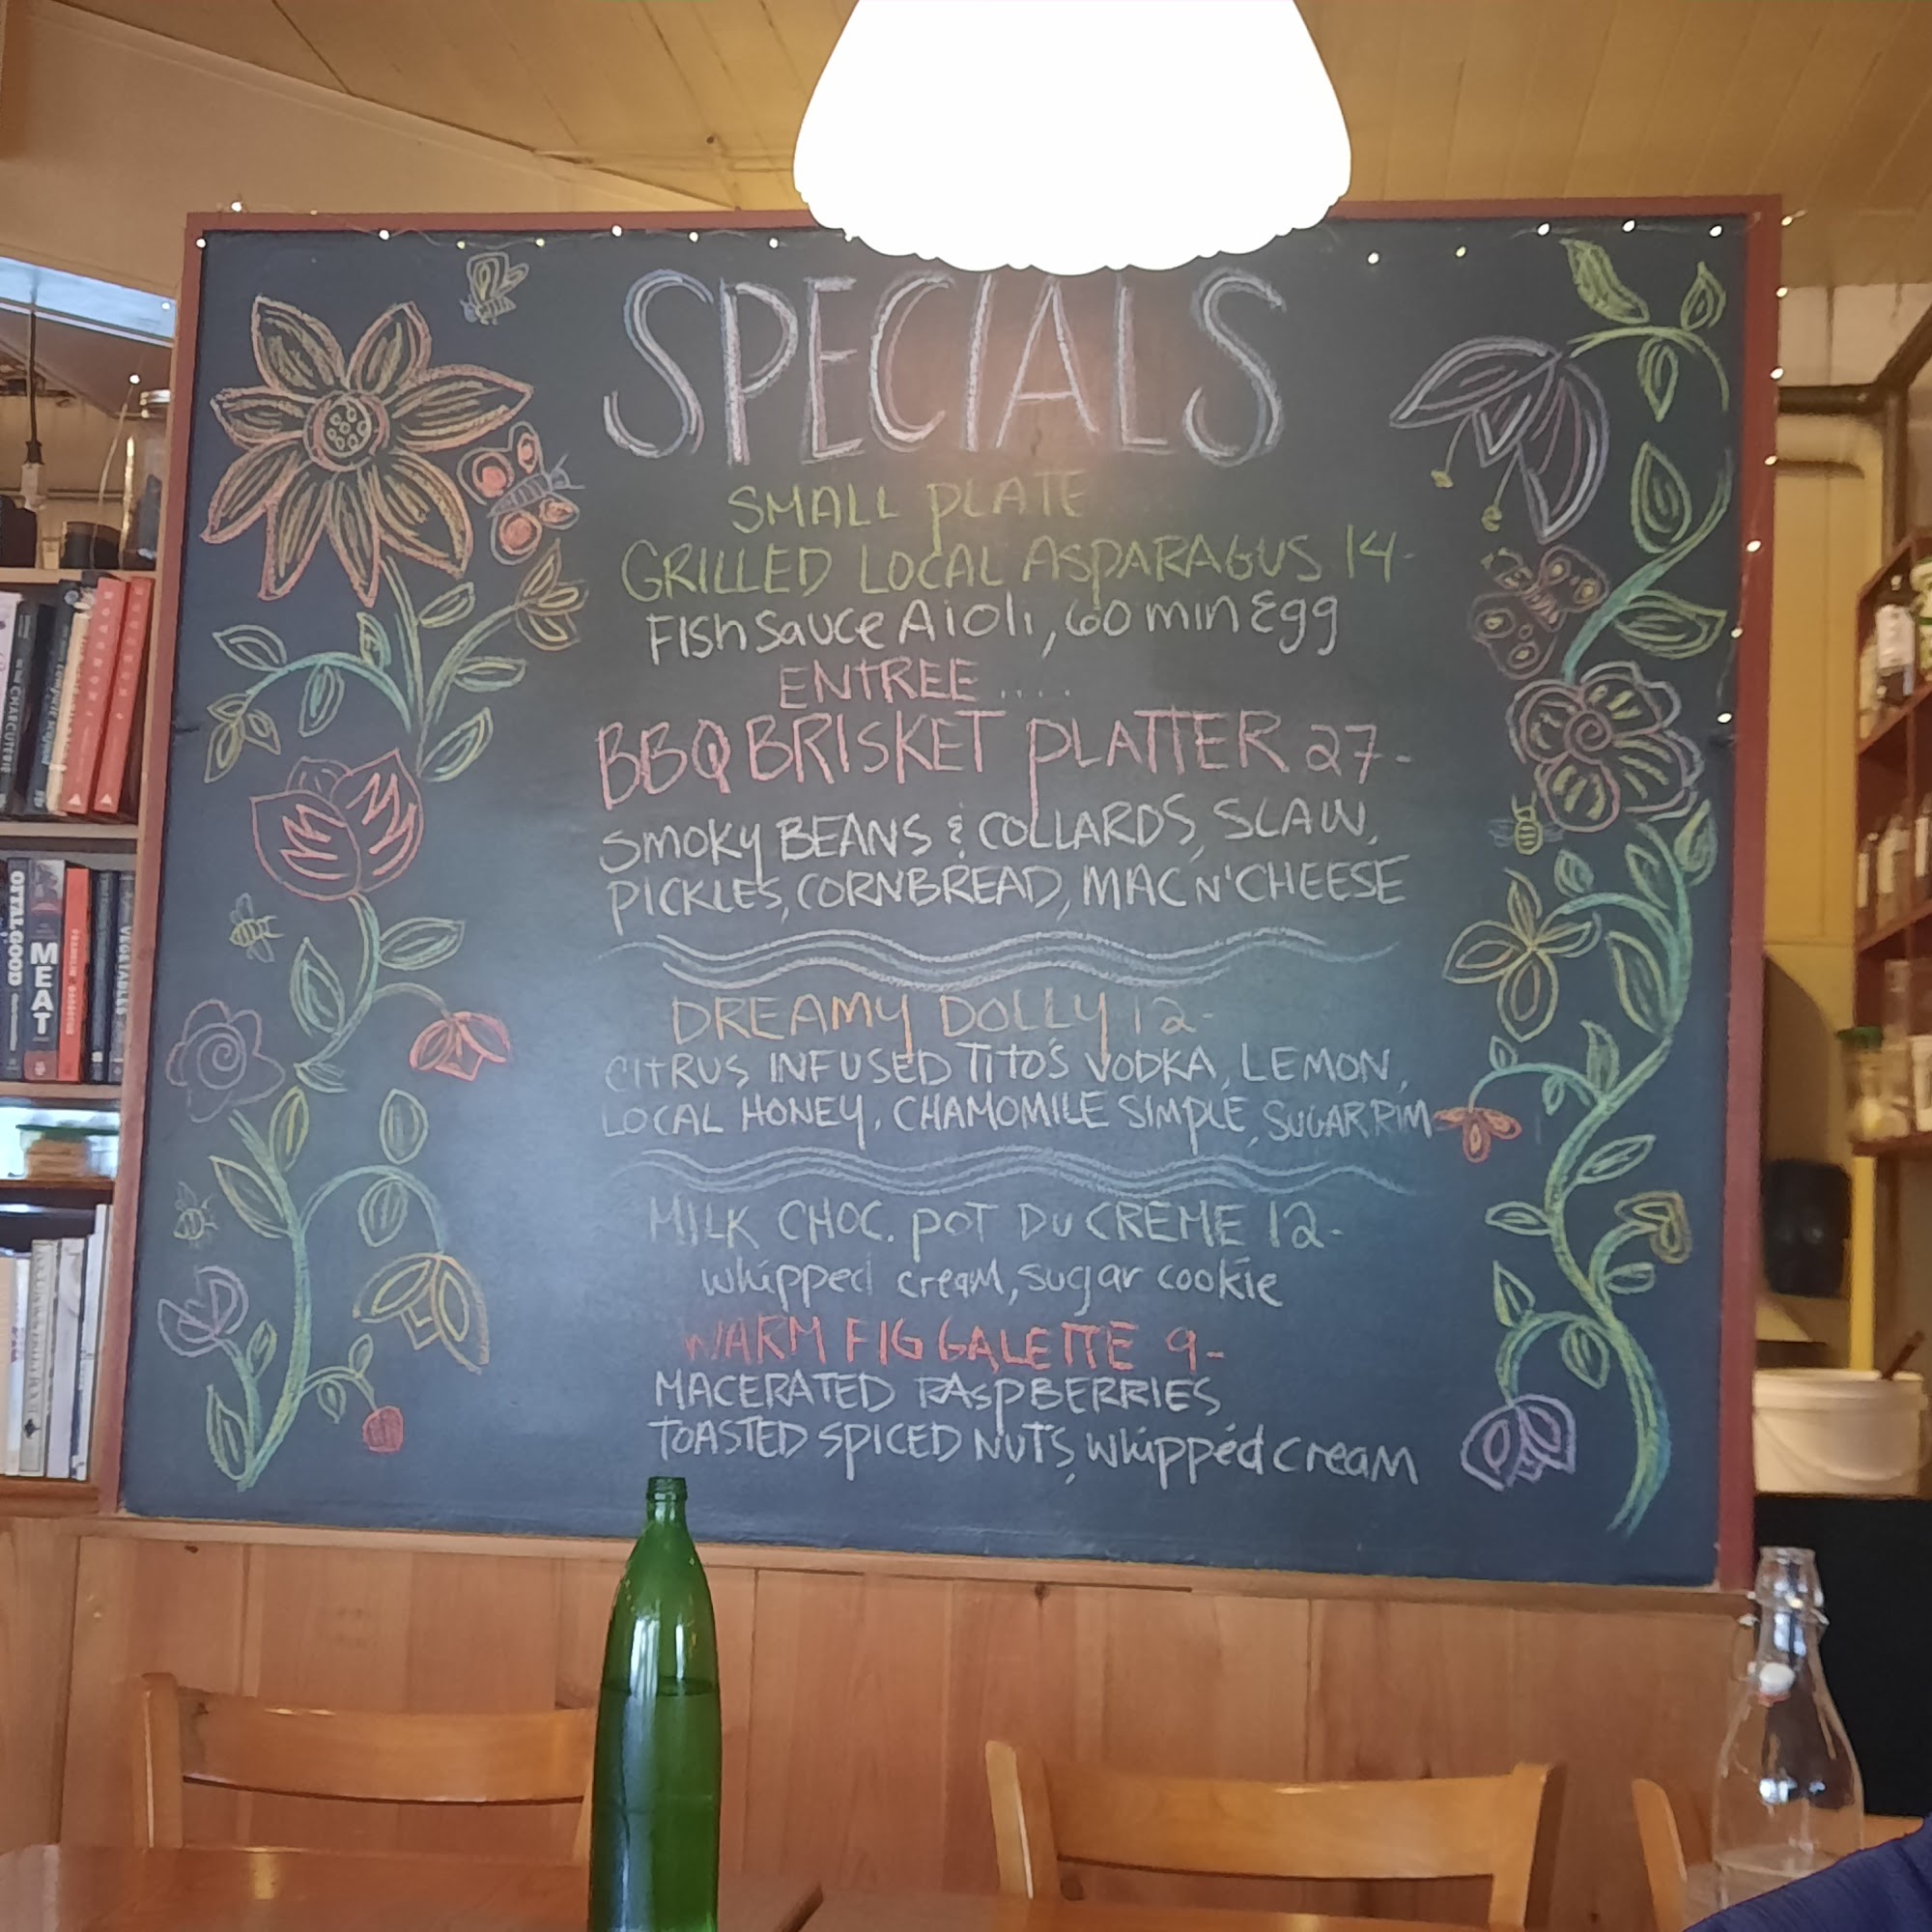 SPECIALS
SMALL PLATE
GRILLED LOCAL ASPARAGUS 14-
Fish Sauce Aioli, 60 min Egg
ENTREE ....
BBQ BRISKET PLATTER 27-
SMOKY BEANS & COLLARDS, SLAW,
PICKLES, CORNBREAD, MAC N' CHEESE
DREAMY DOLLY 12-
CITRUS INFUSED TITO'S VODKA, LEMON,
LOCAL HONEY, CHAMOMILE SIMPLE, SUGAR RIM
MILK CHOC. POT DU CREME 12-
whipped cream, sugar cookie
WARM FIG GALETTE 9-
MACERATED RASPBERRIES
TOASTED SPICED NUTS, whipped cream
CHARCUTERIE
OTTALGOOD
MEAT
FRANKLIN BARBECUE
VEGETABLES